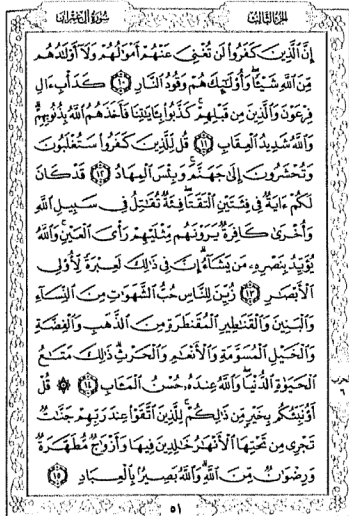 الجزء الثالث سورة آل عمران
إِنَّ ٱلَّذِينَ كَفَرُوا۟ لَن تُغْنِىَ عَنْهُمْ أَمْوَٰلُهُمْ وَلَآ أَوْلَٰدُهُم
مِّنَ ٱللَّهِ شَيْـًٔا وَأُو۟لَٰٓئِكَ هُمْ وَقُودُ ٱلنَّارِ ١٠ كَدَأْبِ ءَالِ
فِرْعَوْنَ وَٱلَّذِينَ مِن قَبْلِهِمْ كَذَّبُوا۟ بِـَٔايَٰتِنَا فَأَخَذَهُمُ ٱللَّهُ بِذُنُوبِهِمْ
وَٱللَّهُ شَدِيدُ ٱلْعِقَابِ ١١ قُل لِّلَّذِينَ كَفَرُوا۟ سَتُغْلَبُونَ
وَتُحْشَرُونَ إِلَىٰ جَهَنَّمَ وَبِئْسَ ٱلْمِهَادُ ١٢ قَدْ كَانَ
لَكُمْ ءَايَةٌ فِى فِئَتَيْنِ ٱلْتَقَتَا فِئَةٌ تُقَٰتِلُ فِى سَبِيلِ ٱللَّهِ
وَأُخْرَىٰ كَافِرَةٌ يَرَوْنَهُم مِّثْلَيْهِمْ رَأْىَ ٱلْعَيْنِ وَٱللَّهُ
يُؤَيِّدُ بِنَصْرِهِۦ مَن يَشَآءُ إِنَّ فِى ذَٰلِكَ لَعِبْرَةً لِّأُو۟لِى
ٱلْأَبْصَٰرِ ١٣ زُيِّنَ لِلنَّاسِ حُبُّ ٱلشَّهَوَٰتِ مِنَ ٱلنِّسَآءِ
وَٱلْبَنِينَ وَٱلْقَنَٰطِيرِ ٱلْمُقَنطَرَةِ مِنَ ٱلذَّهَبِ وَٱلْفِضَّةِ
وَٱلْخَيْلِ ٱلْمُسَوَّمَةِ وَٱلْأَنْعَٰمِ وَٱلْحَرْثِ ذَٰلِكَ مَتَٰعُ
ٱلْحَيَوٰةِ ٱلدُّنْيَا وَٱللَّهُ عِندَهُۥ حُسْنُ ٱلْمَـَٔابِ ١٤ ۞ قُلْ
أَؤُنَبِّئُكُم بِخَيْرٍ مِّن ذَٰلِكُمْ لِلَّذِينَ ٱتَّقَوْا۟ عِندَ رَبِّهِمْ جَنَّٰتٌ
تَجْرِى مِن تَحْتِهَا ٱلْأَنْهَٰرُ خَٰلِدِينَ فِيهَا وَأَزْوَٰجٌ مُّطَهَّرَةٌ
وَرِضْوَٰنٌ مِّنَ ٱللَّهِ وَٱللَّهُ بَصِيرٌۢ بِٱلْعِبَادِ ١٥
الحزب
٦
٥١